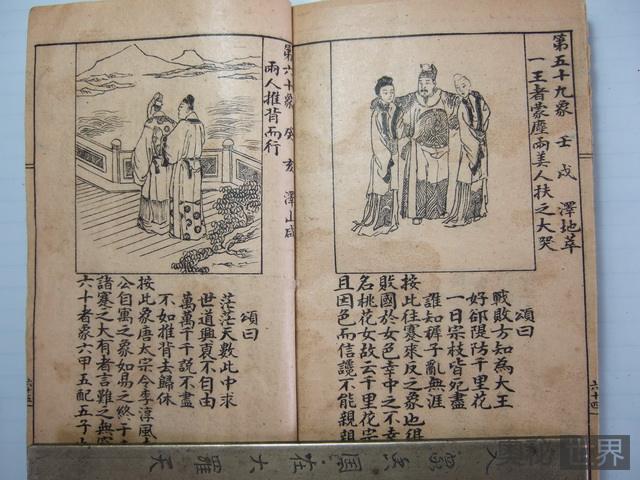 第五十九象 壬戌 澤地萃
一王者蒙塵兩美人扶之大哭
頌曰
戰敗方知為大王
好邰隄防千里花
一日宗枝皆死盡
誰知褲子亂無涯
按此往蹇來反之象也
敗國於女色幸中之不幸
名桃花女故云千里花宗
且因色而信讒不能親親
六十四
第六十象 癸亥 澤山咸
兩人推背而行
頌曰
茫茫天數此中求
世道興衰不自由
萬萬千千說不盡
不如推背去歸休
按此象唐太宗令李淳風
公自寓之象如易之終于
諸蹇之大有者言雖之無
六十者象六甲五配五子
六十五
天羅大在
世界